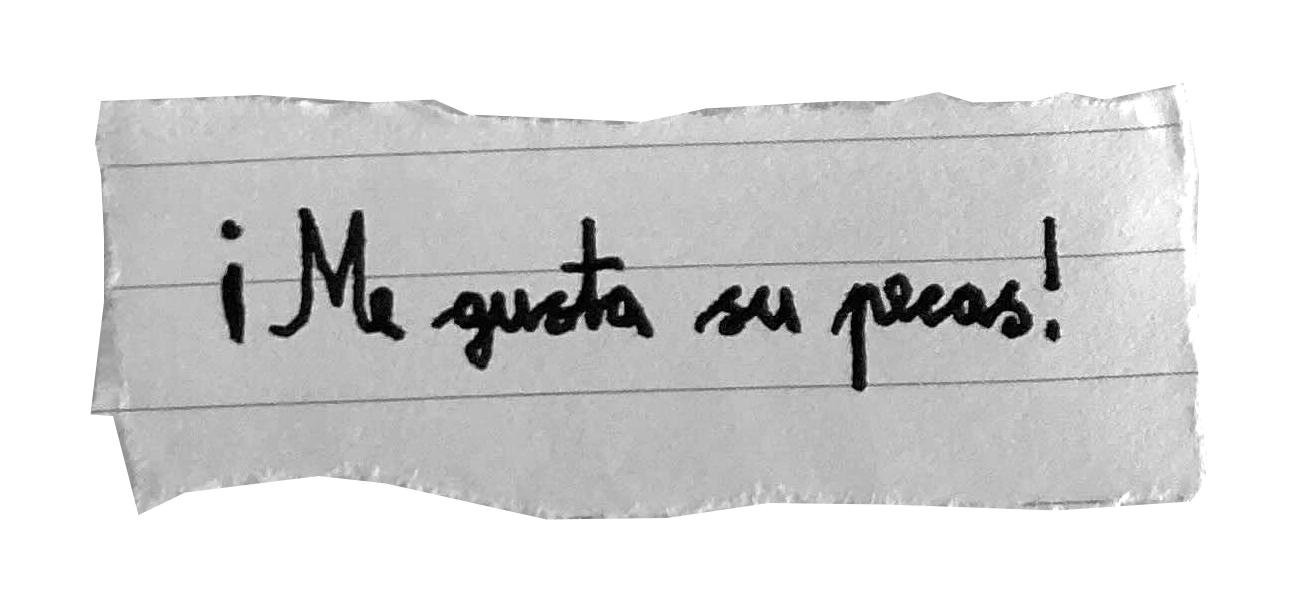 ¡Me gusta su pecas!